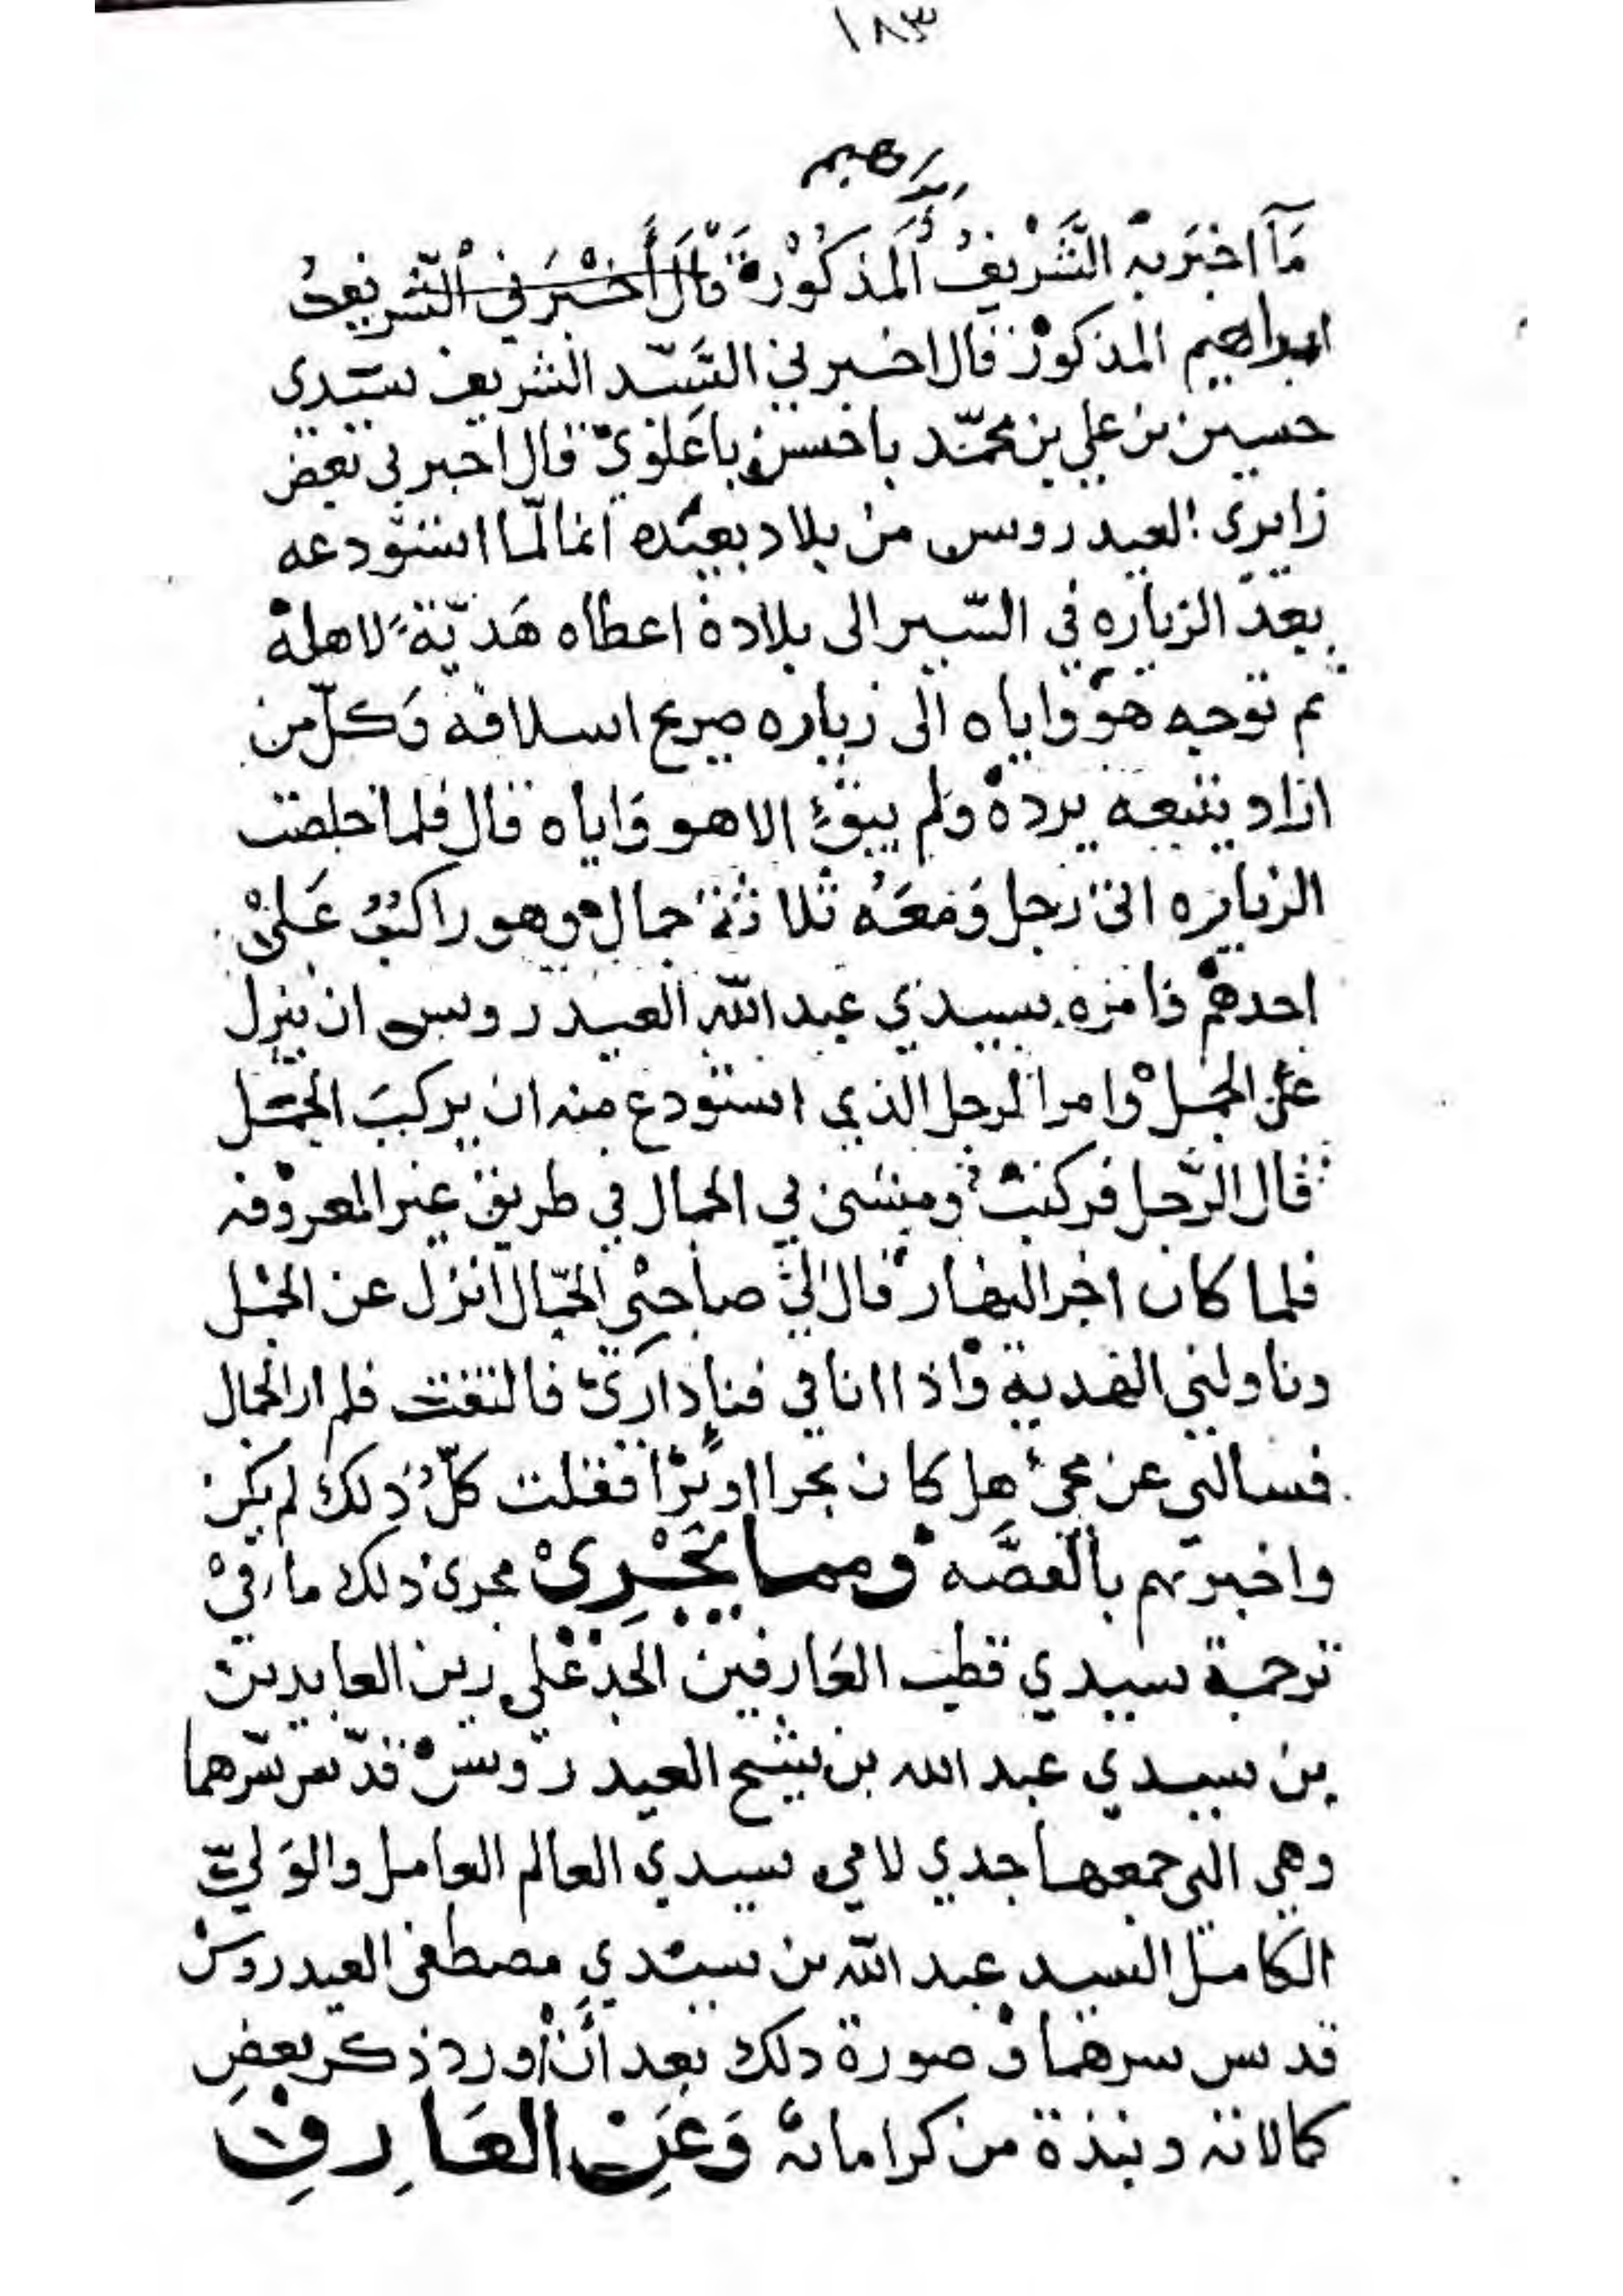 ١٨٣
ابرهيم
مَآ اخبَر بهِ الشَّرِيفُ المَذكُوْر قَالَ أَخْبَرَنِي الشَّرِيفُ
ابراهيم المذكور قال اخبرني السَّيّد الشريف سيّدي
حسين بن علي بن محمّد باحسن باعَلَويّ قال اخبرني بعض
زايري العيدروس من بلاد بعيده انه لمّا استودعه
بعد الزياره في السّير الى بلاده اعطاه هَديّةً لاهله
ثم توجه هو واياه الى زياره ضريح اسلافه وَكلّ من
اراد يتبعه يرده ولم يبقَ الا هو وَاياه قال فلما خلصت
الزياره اتى رجل وَمَعَهُ ثلاثة جمال وهو راكبُ عَلىْ
احدهم فامره سيدي عبد اللّه العيدروس ان ينزل
عن الجمل وامر الرجل الذي استودع منه ان يركبَ الجمل
قال الرَّجل فركبت ومشى بي الجمال في طريق غير المعروفه
فلما كان اخر النهار قال لي صاحبي الجمّال انزل عن الجمل
وناولني الهدية واذا انا في فناء داري فالتفت فلم ار الجمال
فسالني عن مجئ هل كان بحرا او برًّا فقلت كلُّ ذلك لم يكن
واخبرتهم بالقصَّه ومما يَجْرِىْ مجرى ذلك ما في
ترجمة سيدي قطب العَارفين الجد علي زين العابدين
بن سيدي عبد الله بن شيخ العيدروس قدّس سرّهما
وهي التي جمعها جدي لامي سيدي العالم العامل والوَليّ
الكامل السيد عبد اللّه بن سيدي مصطفى العيدروس
قدس سرهما وصورة ذلك بعد أنْ اورد ذكر بعضِ
كمالاته ونبذة من كراماته وَعَنِ العَارِفِ